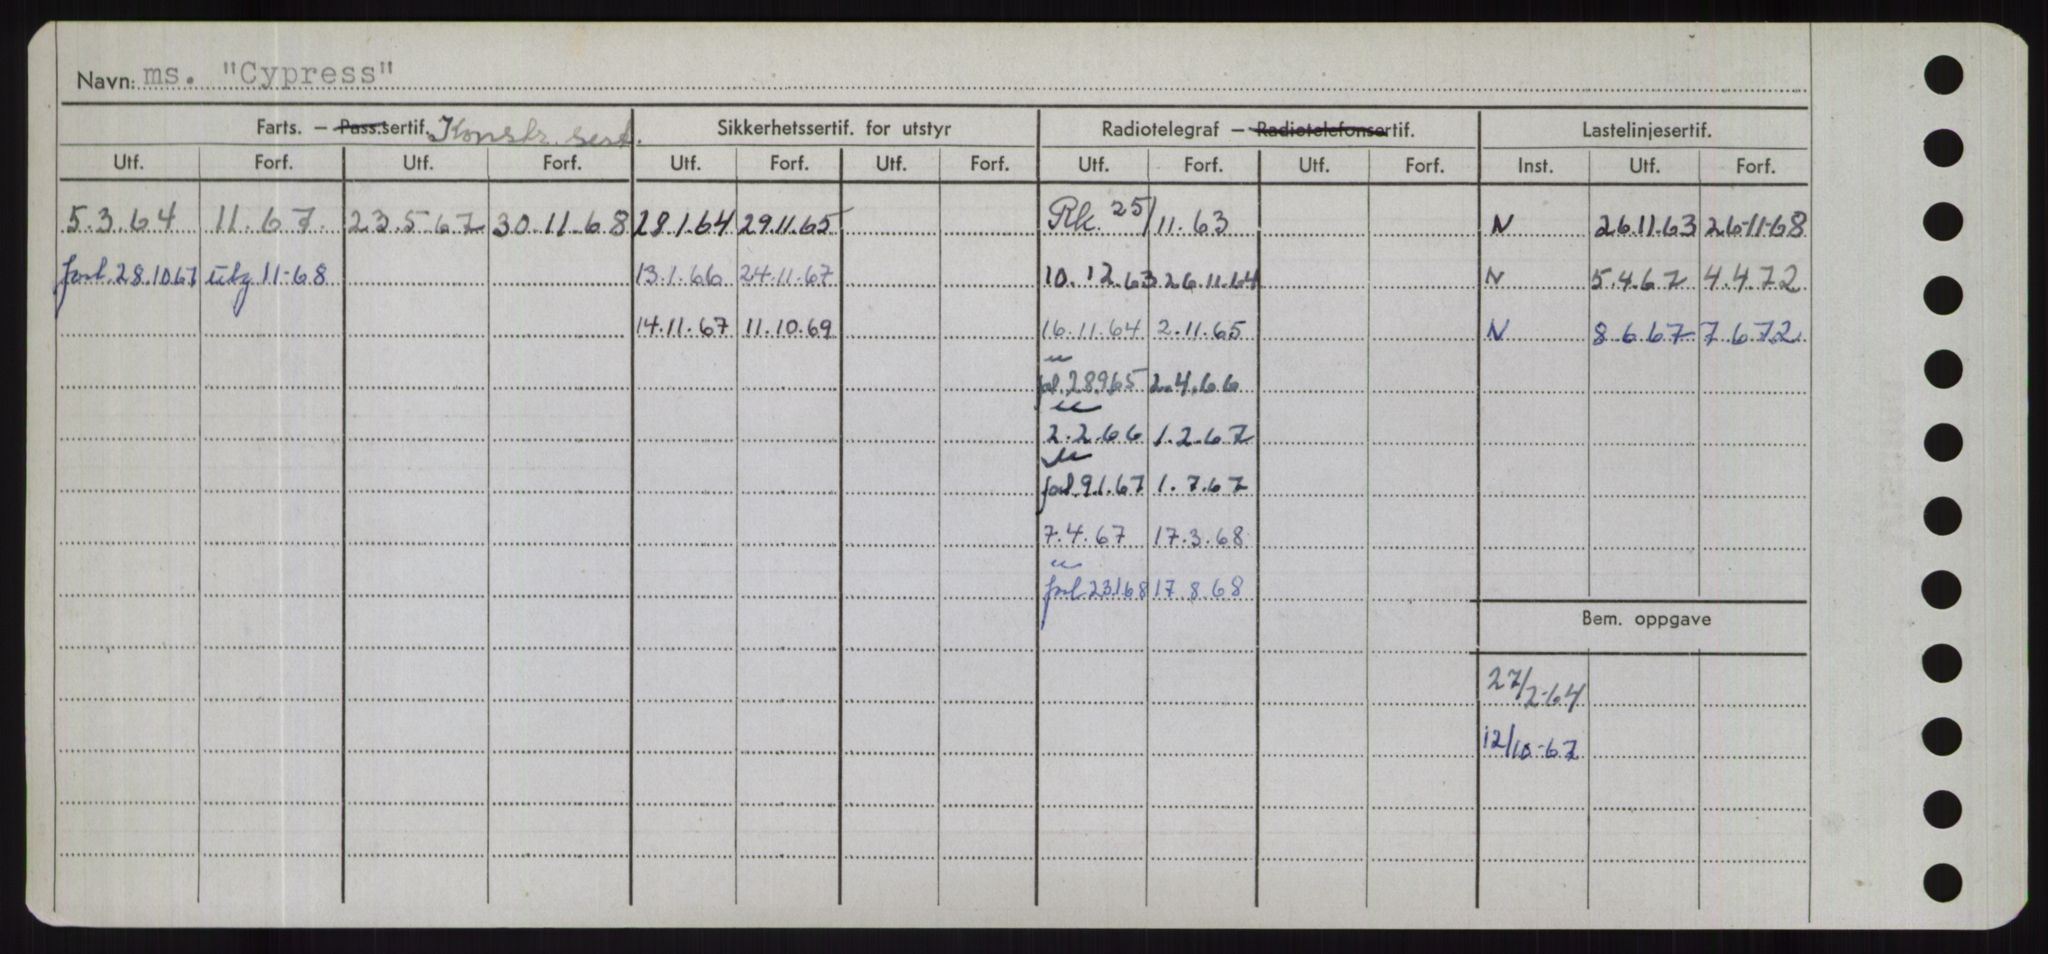 Navn: ms. "Cypress"
Farts. — Pass.sertif. Konstr. sert. Sikkerhetssertif. for utstyr Radiotelegraf — Radiotelefonsertif. Lastelinjesertif.
Utf. Forf. Utf. Forf. Utf. Forf. Utf. Forf. Utf. Forf. Utf. Forf. Inst. Utf. Forf.
5.3.64 11.67. 23.5-67 30.11-68 28.1.64 29.11.65 Rk. 25/11.63 N 26.11.63 26-11-68
forl. 28.10.67 utg 11-68 13.1.66 24.11.67 10.12.63 26.11.64 N 5.4.67 4.4.72
14.11.67 11.10.69 16.11.64 2.11.65 N 8 6 67 7 6 72
" forl. 28.9.65 2.4.66
" 2.2.66 1.2.67
" forl. 9.1.67 1.7.67
7.4.67 17.3.68
" forl 23.1.68 17.8.68
Bem. oppgave
27/2-64
12/10-67